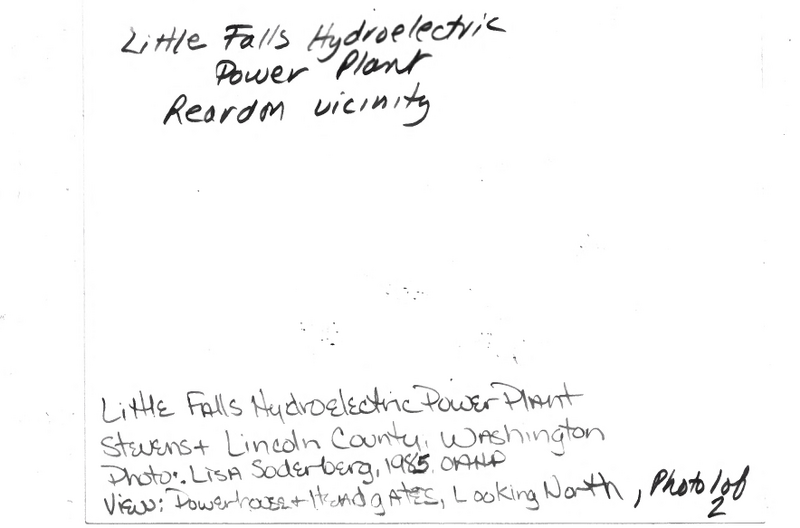 Little Falls Hydroelectric
Power Plant
Reardon vicinity
Little Falls Hydroelectric Power Plant
Stevens + Lincoln County, Washington
Photo: Lisa Soderberg, 1985 OAHP
View: Powerhouse + Headgates, Looking North, Photo 1 of
2